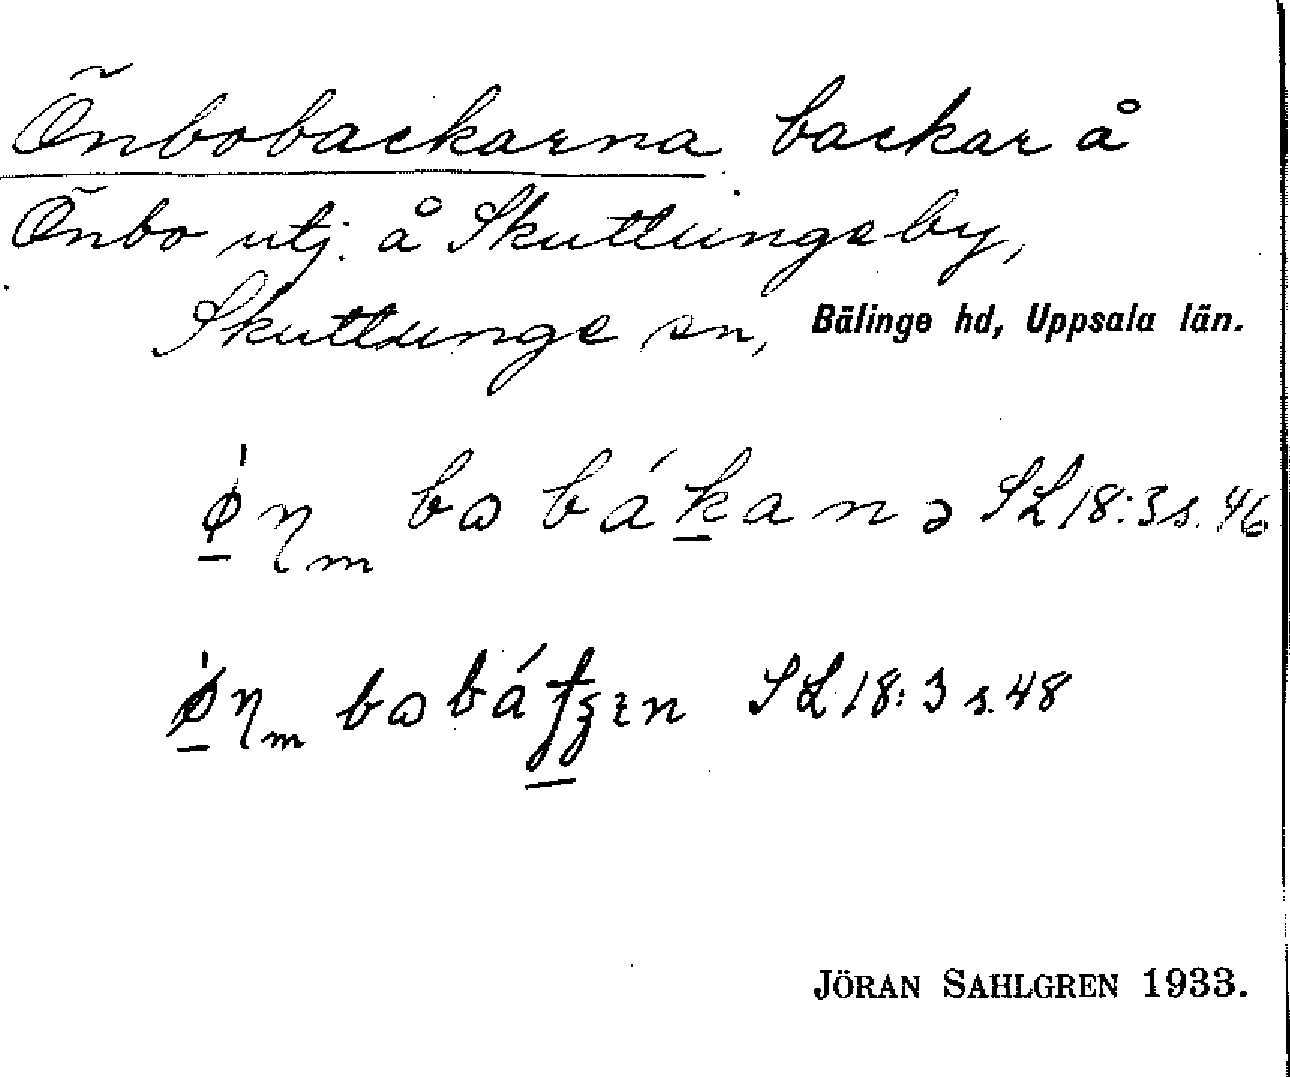 Önbobackarna backar å
Önbo utj. å Skuttungeby,
Skuttunge sn, Bälinge hd, Uppsala län.
SL 18:3 s. 46
SL 18:3 s. 48
JÖRAN SAHLGREN 1933.